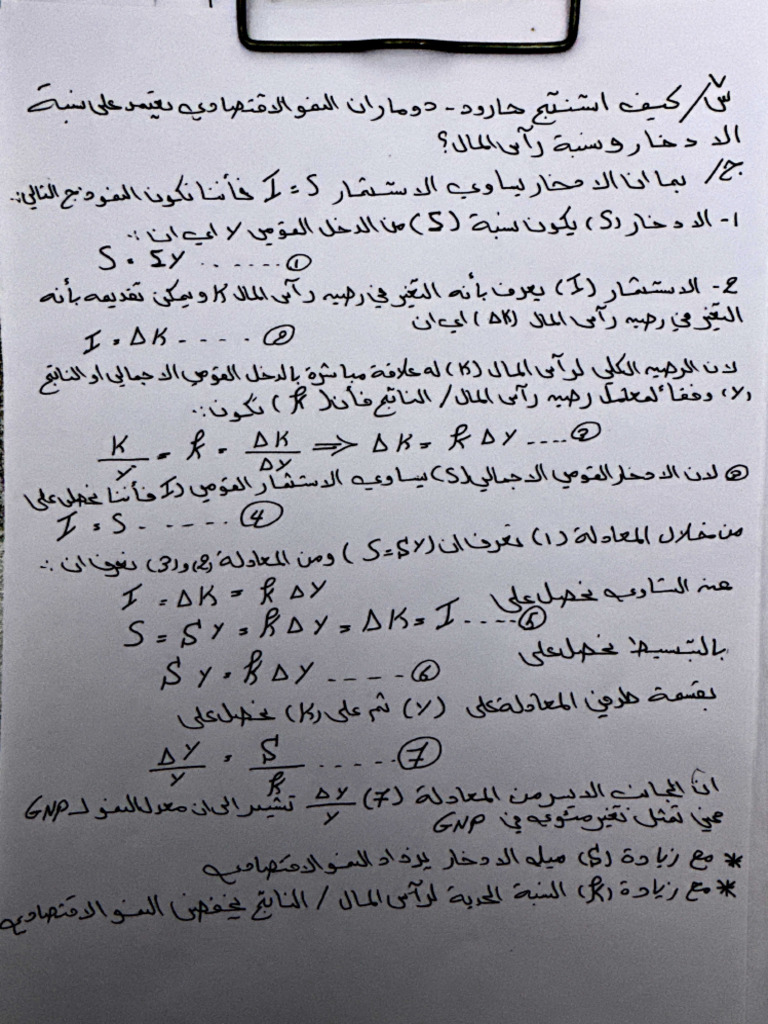 س/ كيف استنتج هارود - دومار ان النمو الاقتصادي يعتمد على نسبة
الادخار ونسبة رأس المال؟
ج/ بما ان الادخار يساوي الاستثمار I = S فأننا نكون النموذج التالي:.
١- الادخار (S) يكون نسبة (S) من الدخل القومي Y اي ان:.
S = SY ...... ①
٢- الاستثمار (I) يعرف بأنه التغير في رصيد رأس المال K ويمكن تقديمه بأنه
التغير في رصيد رأس المال (ΔK) اي ان
I = ΔK ...... ②
لان الرصيد الكلي لرأس المال (K) له علاقة مباشرة بالدخل القومي الاجمالي او الناتج
(Y) وفقاً لمعامل رصيد رأس المال / الناتج فأن (k) تكون:.
K/Y = k = ΔK/ΔY ⇒ ΔK = k ΔY .... ③
③ لان الادخار القومي الاجمالي (S) يساوي الاستثمار القومي (I) فأننا نحصل على
I = S ...... ④
من خلال المعادلة (١) نعرف ان (S=SY) ومن المعادلة (٢) و(٣) نعرف ان:.
I = ΔK = k ΔY
عند التساوي نحصل على
S = SY = k ΔY = ΔK = I .... ⑤
بالتبسيط نحصل على
SY = k ΔY .... ⑥
بقسمة طرفي المعادلة على (Y) ثم على (K) نحصل على
ΔY/Y = S/k ...... ⑦
ان الجانب الايسر من المعادلة (7) ΔY/Y تشير الى ان معدل النمو لـ GNP
تمثل تغير في GNP
* مع زيادة (S) ميل الادخار يزداد النمو الاقتصادي
* مع زيادة (k) النسبة الحدية لرأس المال / الناتج ينخفض النمو الاقتصادي